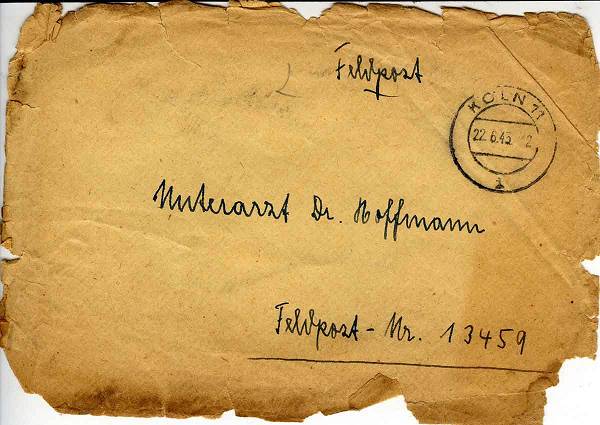 Feldpost
KÖLN 71
22.6.43
1
Unterarzt Dr. Hoffmann
Feldpost-Nr. 13459